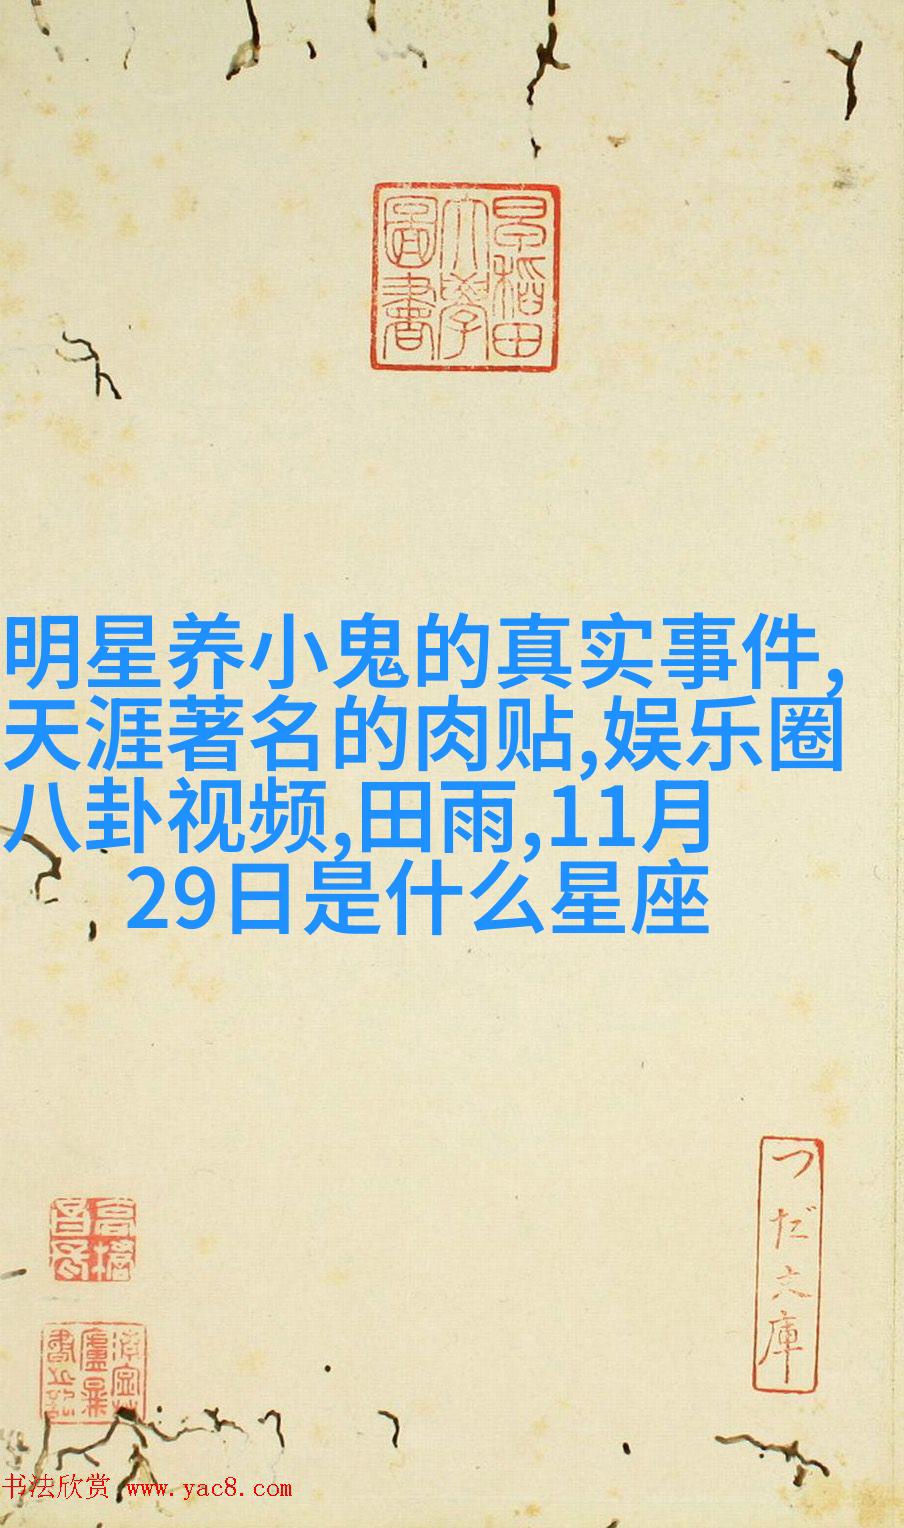 早稲田
大學
圖書
明星养小鬼的真实事件,
天涯著名的肉贴,娱乐圈
八卦视频,田雨,11月
29日是什么星座
つだ文庫
书法欣赏 www.yac8.com